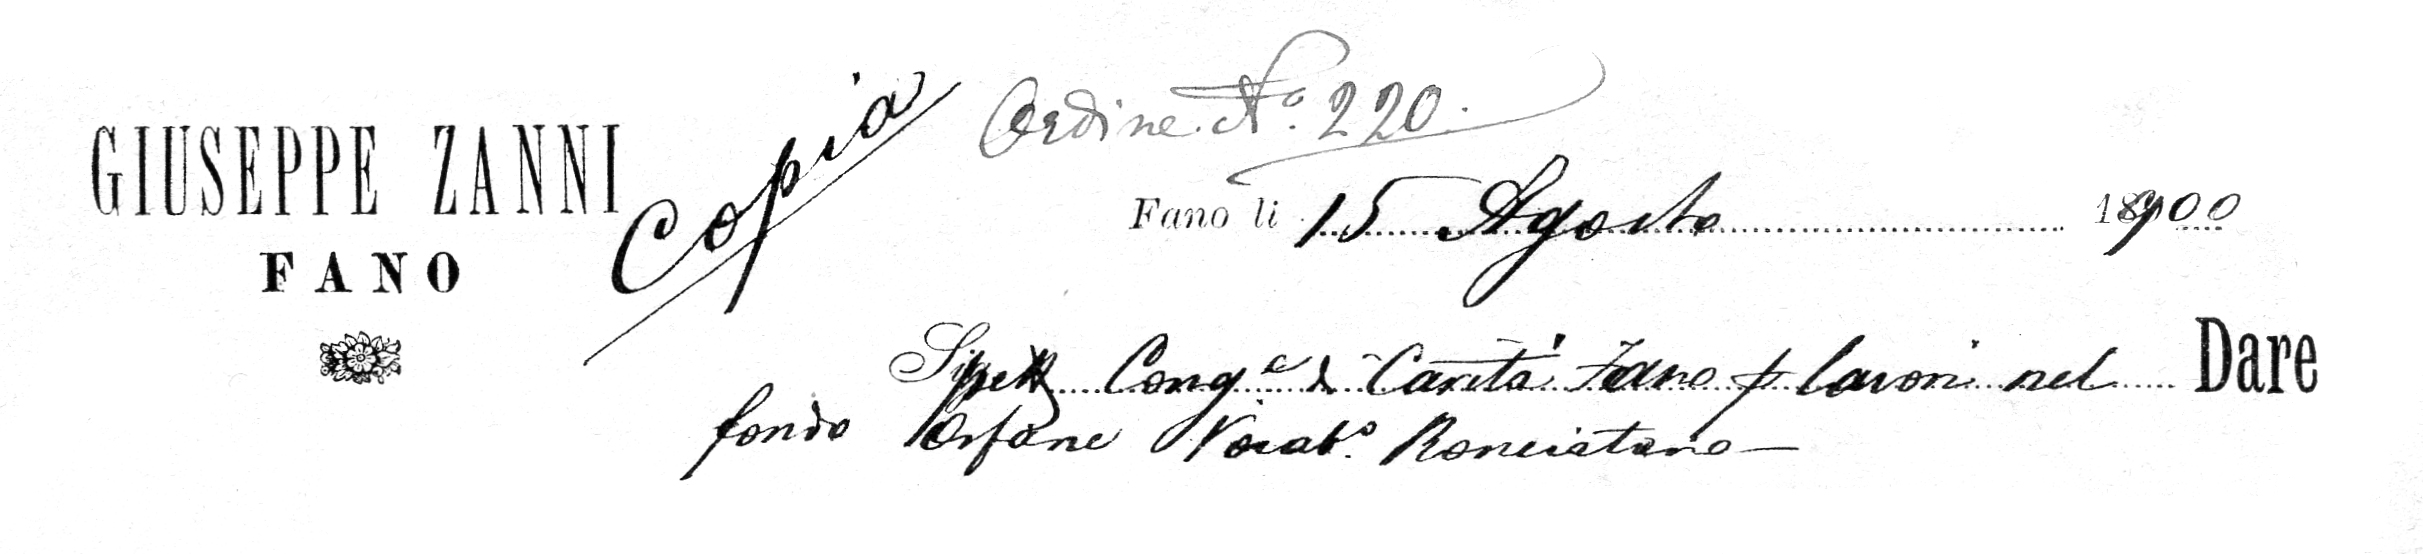 GIUSEPPE ZANNI
FANO
Copia
Ordine N.º 220.
Fano li 15 Agosto 1900
Spett Cong.e di Carità Fano p lavori nel Dare
fondo Orfane Vocab.º Ronciatano